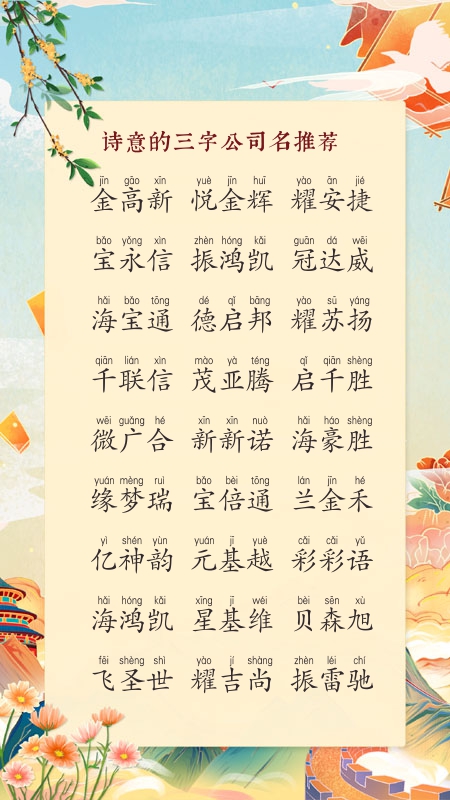 诗意的三字公司名推荐
jīn gāo xīn yuè jīn huī yào ān jié
金高新 悦金辉 耀安捷
bǎo yǒng xìn zhèn hóng kǎi guān dá wēi
宝永信 振鸿凯 冠达威
hǎi bǎo tōng dé qǐ bāng yào sū yáng
海宝通 德启邦 耀苏扬
qiān lián xìn mào yà téng qǐ qiān shèng
千联信 茂亚腾 启千胜
wēi guǎng hé xīn xīn nuò hǎi háo shèng
微广合 新新诺 海豪胜
yuán mèng ruì bǎo bèi tōng lán jīn hé
缘梦瑞 宝倍通 兰金禾
yì shén yùn yuán jī yuè cǎi cǎi yǔ
亿神韵 元基越 彩彩语
hǎi hóng kǎi xīng jī wéi bèi sēn xù
海鸿凯 星基维 贝森旭
fēi shèng shì yào jí shàng zhèn léi chí
飞圣世 耀吉尚 振雷驰